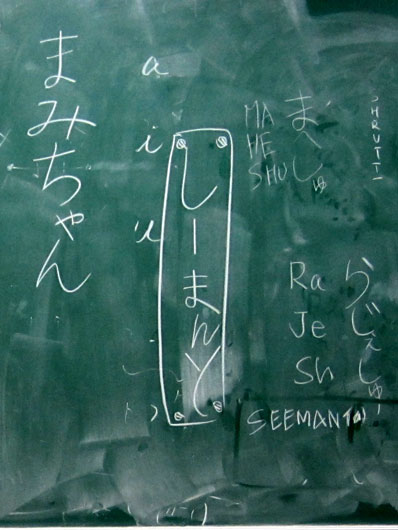 まみちゃん
a
i
u
しーまんと
MA
HE
SHU
まへしゅ
SHRUTI
Ra
Je
Sh
らじぇしゅー
SEEMANT(a)